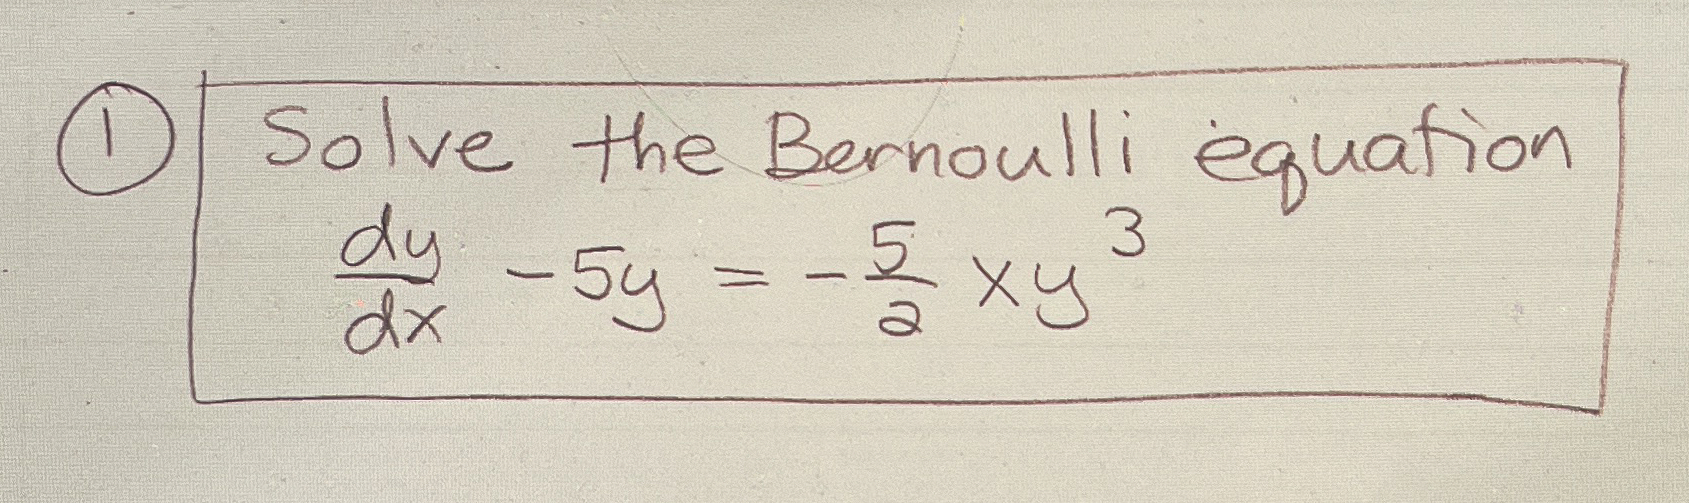 ① Solve the Bernoulli equation
dy/dx - 5y = - 5/2 xy³